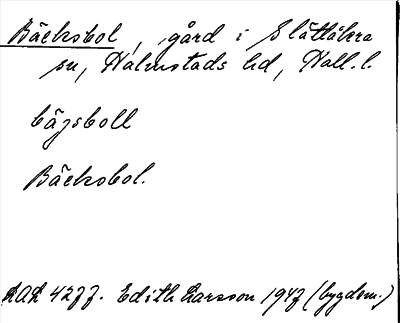 Bäcksbol, gård i Slättåkra
sn, Halmstads hd, Hall. l.
bäjsboll
Bäcksbol.
LAL 4277. Edith Larsson 1947 (bygdem.)